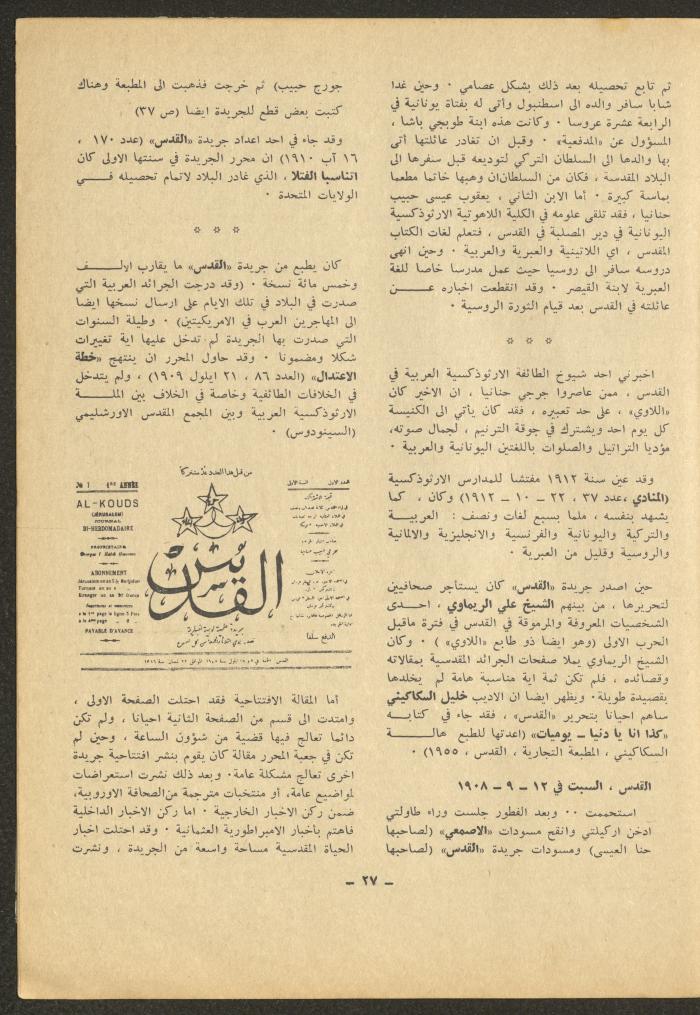 ثم تابع تحصيله بعد ذلك بشكل عصامي · وحين غدا
شابا سافر والده الى اسطنبول وأتى له بفتاة يونانية في
الرابعة عشرة عروسا · وكانت هذه ابنة طوبجي باشا ،
المسؤول عن «المدفعية» · وقبل ان تغادر عائلتها أتى
بها والدها الى السلطان التركي لتوديعه قبل سفرها الى
البلاد المقدسة ، فكان من السلطان ان وهبها خاتما مطعما
بماسة كبيرة · أما الابن الثاني ، يعقوب عيسى حبيب
حنانيا ، فقد تلقى علومه في الكلية اللاهوتية الارثوذكسية
اليونانية في دير المصلبة في القدس ، فتعلم لغات الكتاب
المقدس ، اي اللاتينية والعبرية والعربية · وحين انهى
دروسه سافر الى روسيا حيث عمل مدرسا خاصا للغة
العبرية لابنة القيصر · وقد انقطعت اخباره عـــن
عائلته في القدس بعد قيام الثورة الروسية ·
* * *
اخبرني احد شيوخ الطائفة الارثوذكسية العربية في
القدس ، ممن عاصروا جرجي حنانيا ، ان الاخير كان
«اللاوي» ، على حد تعبيره ، فقد كان يأتي الى الكنيسة
كل يوم احد ويشترك في جوقة الترنيم ، لجمال صوته،
مؤديا التراتيل والصلوات باللغتين اليونانية والعربية ·
وقد عين سنة ١٩١٢ مفتشا للمدارس الارثوذكسية
(المنادي ،عدد ٣٧ ، ٢٢ – ١٠ – ١٩١٢) وكان ، كما
يشهد بنفسه ، ملما بسبع لغات ونصف : العربيـــة
والتركية واليونانية والفرنسية والانجليزية والالمانية
والروسية وقليل من العبرية ·
حين اصدر جريدة «القدس» كان يستأجر صحافيين
لتحريرها ، من بينهم الشيخ علي الريماوي ، احـدى
الشخصيات المعروفة والمرموقة في القدس في فترة ماقبل
الحرب الاولى (وهو ايضا ذو طابع «اللاوي» ) · وكان
الشيخ الريماوي يملا صفحات الجرائد المقدسية بمقالاته
وقصائده ، فلم تكن ثمة اية مناسبة هامة لم يخلدها
بقصيدة طويلة· ويظهر ايضا ان الاديب خليل السكاكيني
ساهم احيانا بتحرير «القدس» ، فقد جاء في كتابـــه
«كذا انا يا دنيا ــ يوميات» (اعدتها للطبع هالـــة
السكاكيني ، المطبعة التجارية ، القدس ، ١٩٥٥) ·
القدس ، السبت في ١٢ – ٩ – ١٩٠٨
استحممت ·· وبعد الفطور جلست وراء طاولتي
ادخن اركيلتي وانقح مسودات «الاصمعي» (لصاحبها
حنا العيسى) ومسودات جريدة «القدس» (لصاحبها
جورج حبيب) ثم خرجت فذهبت الى المطبعة وهناك
كتبت بعض قطع للجريدة ايضا (ص ٣٧)
وقد جاء في احد اعداد جريدة «القدس» (عدد ١٧٠ ،
١٦ آب ١٩١٠) ان محرر الجريدة في سنتها الاولى كان
اتناسيا الفتلا ، الذي غادر البلاد لاتمام تحصيله فــــي
الولايات المتحدة ·
* * *
كان يطبع من جريدة «القدس» ما يقارب الالـــف
وخمس مائة نسخة · (وقد درجت الجرائد العربية التي
صدرت في البلاد في تلك الايام على ارسال نسخها ايضا
الى المهاجرين العرب في الامريكيتين) · وطيلة السنوات
التي صدرت بها الجريدة لم تدخل عليها اية تغييرات
شكلا ومضمونا · وقد حاول المحرر ان ينتهج «خطة
الاعتدال» (العدد ٨٦ ، ٢١ ايلول ١٩٠٩) ، ولم يتدخل
في الخلافات الطائفية وخاصة في الخلاف بين الملـــة
الارثوذكسية العربية وبين المجمع المقدس الاورشليمي
(السينودوس) ·
من قبل هذا العدد عُدّ مشتركاً
№ 1 1re ANNÉE
AL-KOUDS
(JÉRUSALEM)
JOURNAL
BI-HEBDOMADAIRE
PROPRIÉTAIRE
ABONNEMENT
PAYABLE D'AVANCE
العدد الاول السنة الاولى
القدس
الدفع سلفا
أما المقالة الافتتاحية فقد احتلت الصفحة الاولى ،
وامتدت الى قسم من الصفحة الثانية احيانا ، ولم تكن
دائما تعالج فيها قضية من شؤون الساعة ، وحين لم
تكن في جعبة المحرر مقالة كان يقوم بنشر افتتاحية جريدة
اخرى تعالج مشكلة عامة· وبعد ذلك نشرت استعراضات
لمواضيع عامة، أو منتخبات مترجمة من الصحافة الاوروبية،
ضمن ركن الاخبار الخارجية · اما ركن الاخبار الداخلية
فاهتم باخبار الامبراطورية العثمانية · وقد احتلت اخبار
الحياة المقدسية مساحة واسعة من الجريدة ، ونشرت
– ٢٧ –